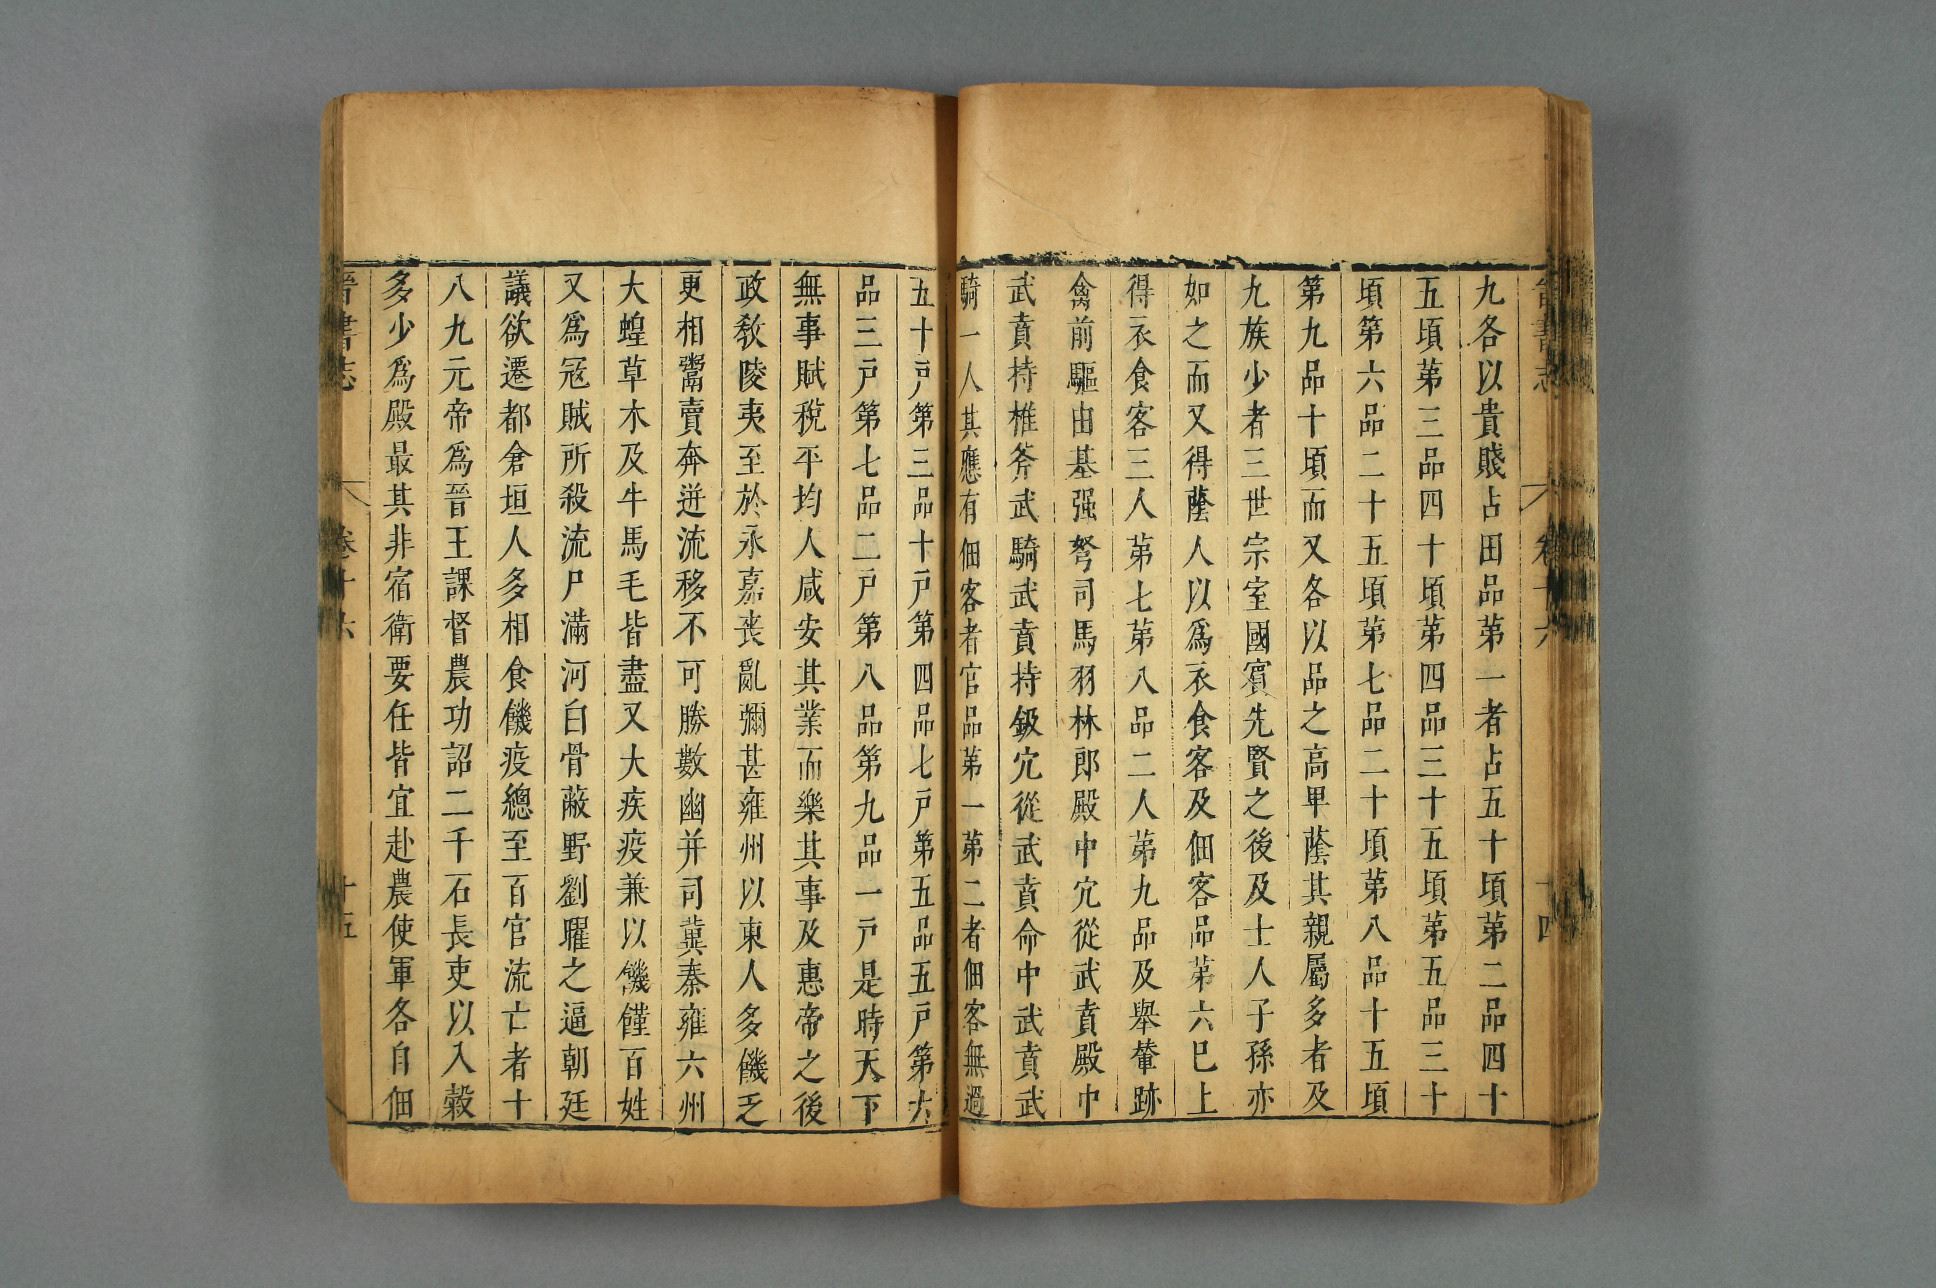 九各以貴賤占田品第一者占五十頃第二品四十
五頃第三品四十頃第四品三十五頃第五品三十
頃第六品二十五頃第七品二十頃第八品十五頃
第九品十頃而又各以品之高甲蔭其親屬多者及
九族少者三世宗室國賓先賢之後及士人子孫亦
如之而又得蔭人以爲衣食客及佃客品第六已上
得衣食客三人第七第八品二人第九品及舉輦跡
禽前驅由基强弩司馬羽林郎殿中冗從武賁殿中
武賁持椎斧武騎武賁持鈒冗從武賁命中武賁武
騎一人其應有佃客者官品第一第二者佃客無過
五十戸第三品十戸第四品七戸第五品五戸第六
品三戸第七品二戸第八品第九品一戸是時天下
無事賦稅平均人咸安其業而樂其事及惠帝之後
政敎陵夷至於永嘉喪亂彌甚雍州以東人多饑乏
更相鬻賣奔迸流移不可勝數幽并司冀秦雍六州
大蝗草木及牛馬毛皆盡又大疾疫兼以饑饉百姓
又爲冦賊所殺流尸滿河白骨蔽野劉曜之逼朝廷
議欲遷都倉垣人多相食饑疫總至百官流亡者十
八九元帝爲晉王課督農功詔二千石長吏以入穀
多少爲殿最其非宿衛要任皆宜赴農使軍各自佃
晉書志
卷十六
十五